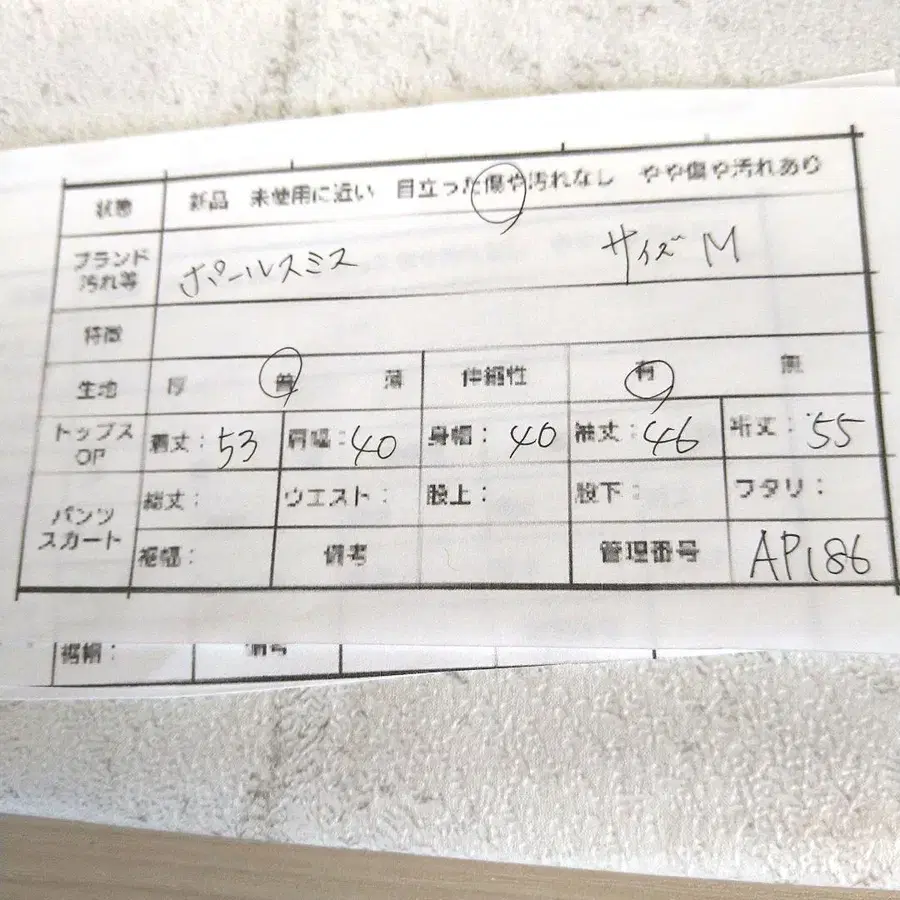 状態 新品 未使用に近い 目立った傷や汚れなし やや傷や汚れあり
ブランド 汚れ等 ポールスミス サイズM
特徴
生地 厚 普 薄 伸縮性 有 無
トップス OP 着丈：53 肩幅：40 身幅：40 袖丈：46 裄丈：55
パンツ スカート 総丈： ウエスト： 股上： 股下： ワタリ：
裾幅： 備考 管理番号 AP186
裾幅： 備考